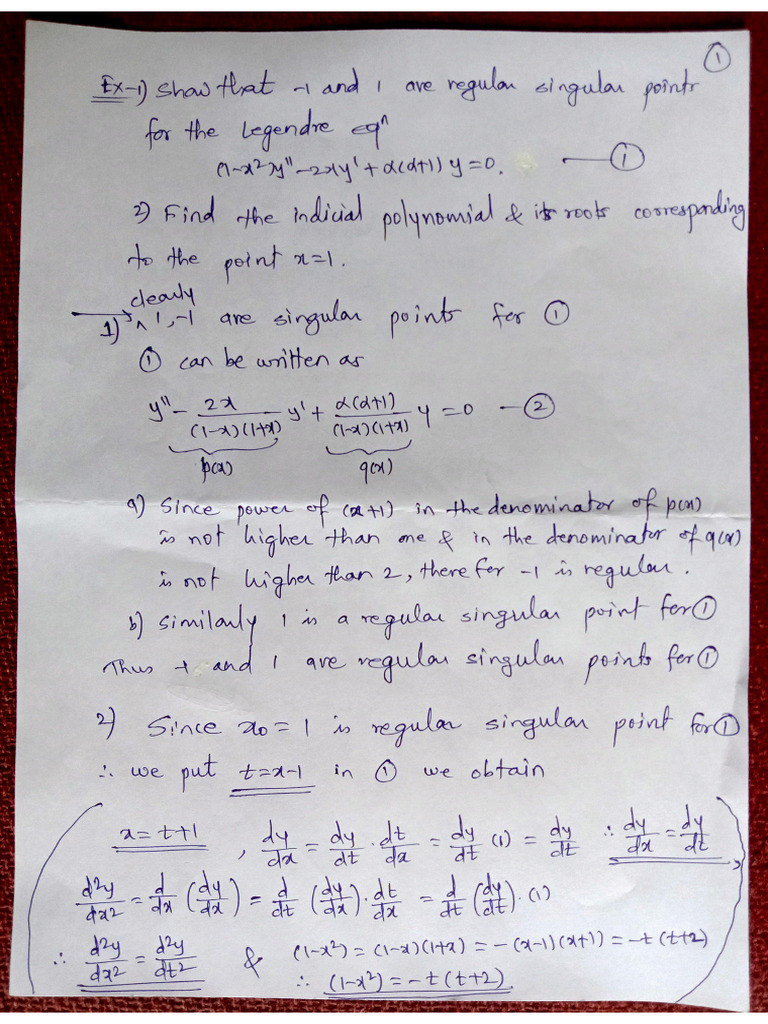 ①
Ex-1) Show that -1 and 1 are regular singular points
for the Legendre eqⁿ
(1-x²)y'' - 2xy' + α(α+1) y = 0. —— ①
2) Find the indicial polynomial & its roots corresponding
to the point x=1.
clearly
1) ^ 1, -1 are singular points for ①
① can be written as
y'' - 2x/((1-x)(1+x)) y' + α(α+1)/((1-x)(1+x)) y = 0 — ②
p(x) q(x)
a) Since power of (x+1) in the denominator of p(x)
is not higher than one & in the denominator of q(x)
is not higher than 2, therefer -1 is regular.
b) Similarly 1 is a regular singular point for ①
Thus -1 and 1 are regular singular points for ①
2) Since x₀ = 1 is regular singular point for ①
∴ we put t=x-1 in ① we obtain
x = t+1 , dy/dx = dy/dt · dt/dx = dy/dt (1) = dy/dt ∴ dy/dx = dy/dt
d²y/dx² = d/dx (dy/dx) = d/dt (dy/dx) · dt/dx = d/dt (dy/dt) · (1)
∴ d²y/dx² = d²y/dt² & (1-x²) = (1-x)(1+x) = -(x-1)(x+1) = -t(t+2)
∴ (1-x²) = -t(t+2).